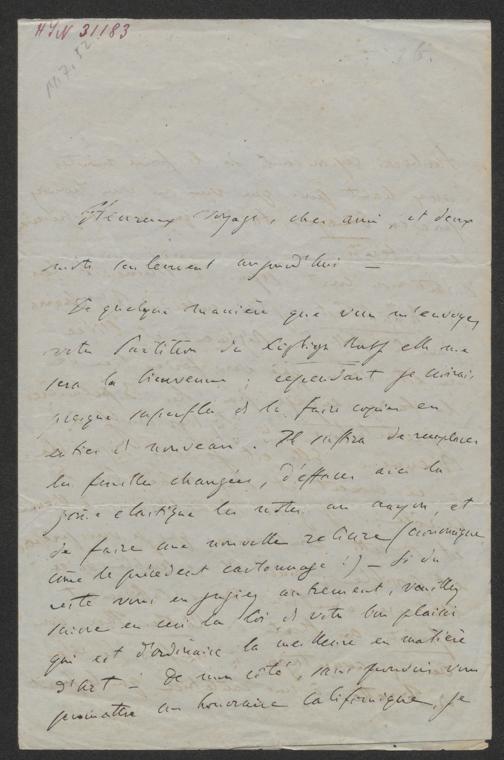 HSN 31183
M.7,52
Heureux voyage, cher ami et deux
mots seulement aujourd'hui —
De quelque manière que vous m'envoyez
votre Partition du elle me
sera la bienvenue ; cependant je croirais
presque superflu de la faire copier en
entier à nouveau. Il suffira de remplacer
les feuilles changées, d'effacer avec la
gomme élastique les notes au crayon, et
de faire une nouvelle reliure (économique
comme le précédent cartonnage !) — Si du
reste vous en jugiez autrement, veuillez
suivre en ceci la loi de votre bon plaisir
qui est d'ordinaire la meilleure en matière
d'art — De mon côté, sans pouvoir vous
promettre un honoraire californique, je